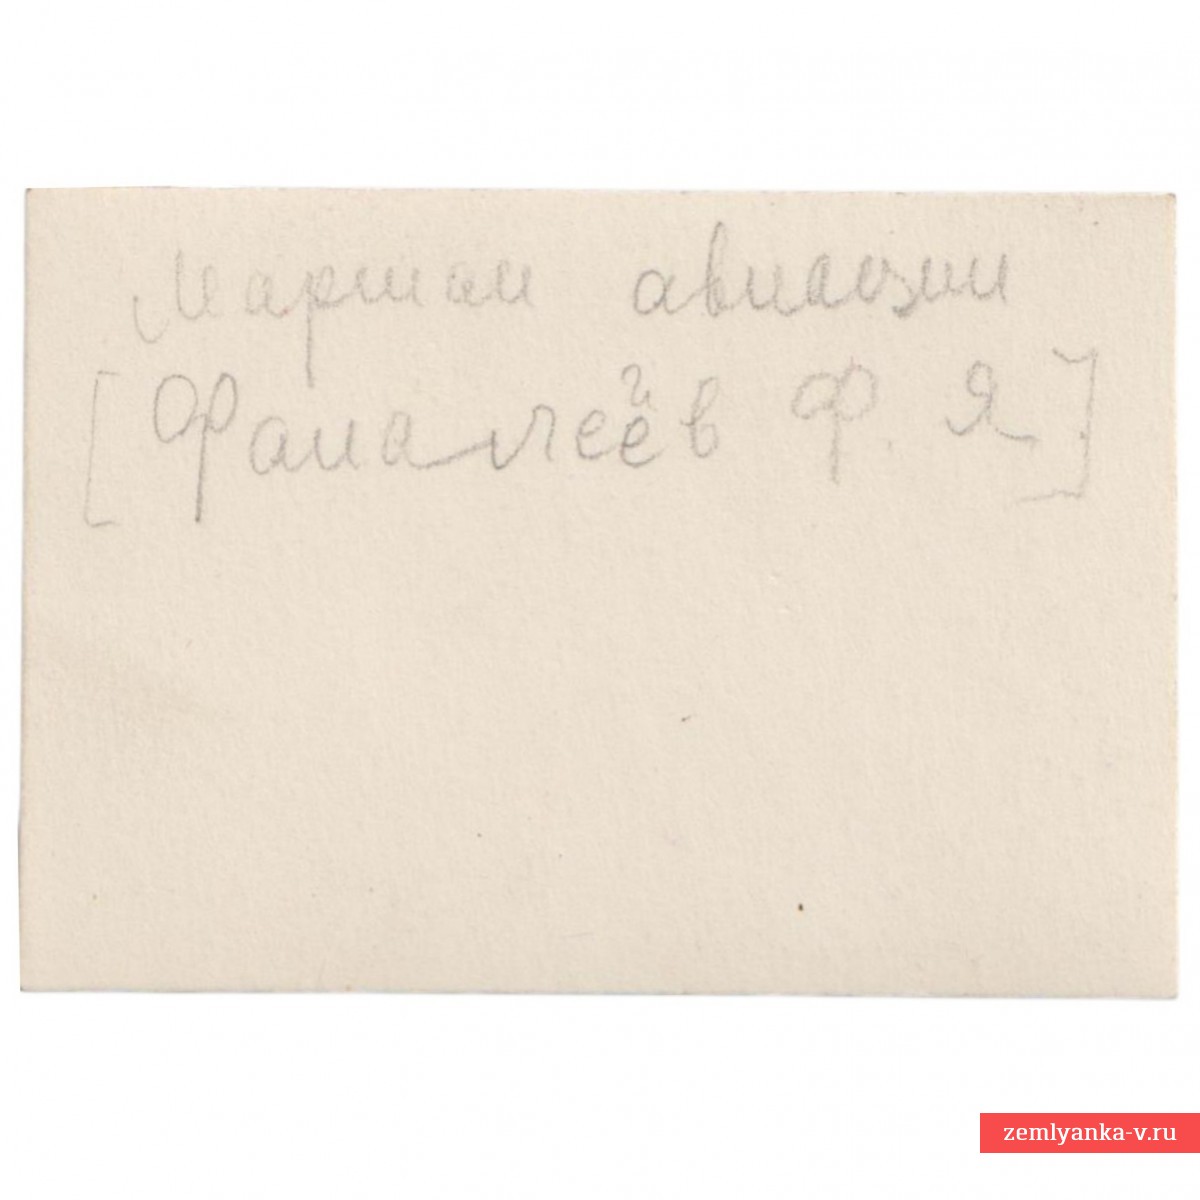 Маршал авиации
[Фалалеев Ф. Я.]
zemlyanka-v.ru